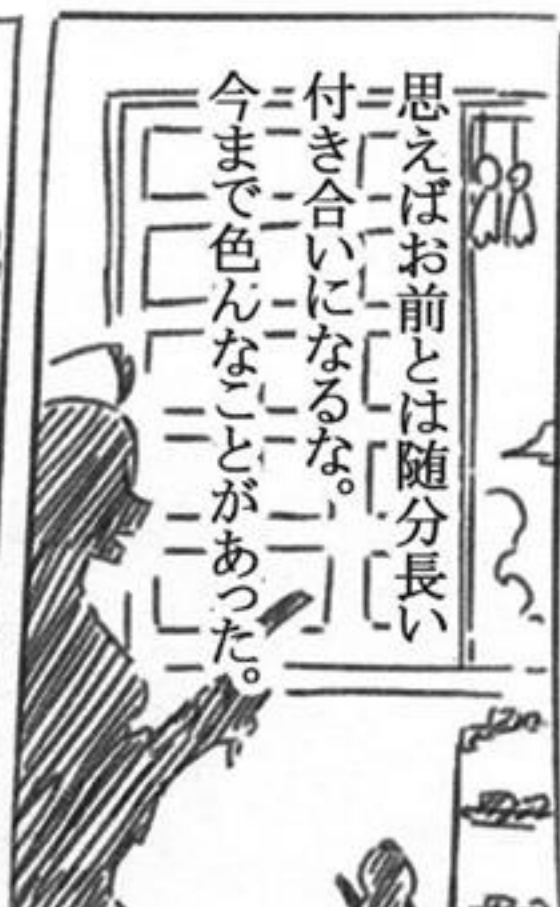 思えばお前とは随分長い
付き合いになるな。
今まで色んなことがあった。